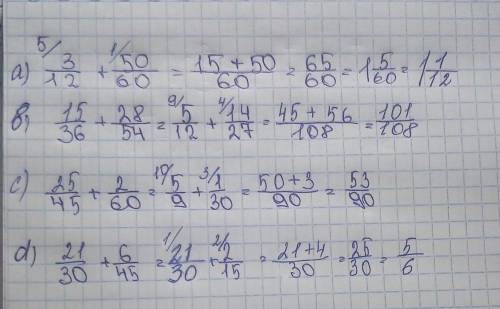 a) ⁵⁄ 3/12 + ¹⁄ 50/60 = 15 + 50/60 = 65/60 = 1 5/60 = 1 1/12
b) 15/36 + 28/54 = ⁹⁄ 5/12 + ⁴⁄ 14/27 = 45 + 56/108 = 101/108
c) 25/45 + 2/60 = ¹⁰⁄ 5/9 + ³⁄ 1/30 = 50+3/90 = 53/90
d) 21/30 + 6/45 = ¹⁄ 21/30 + ²⁄ 2/15 = 21+4/30 = 25/30 = 5/6